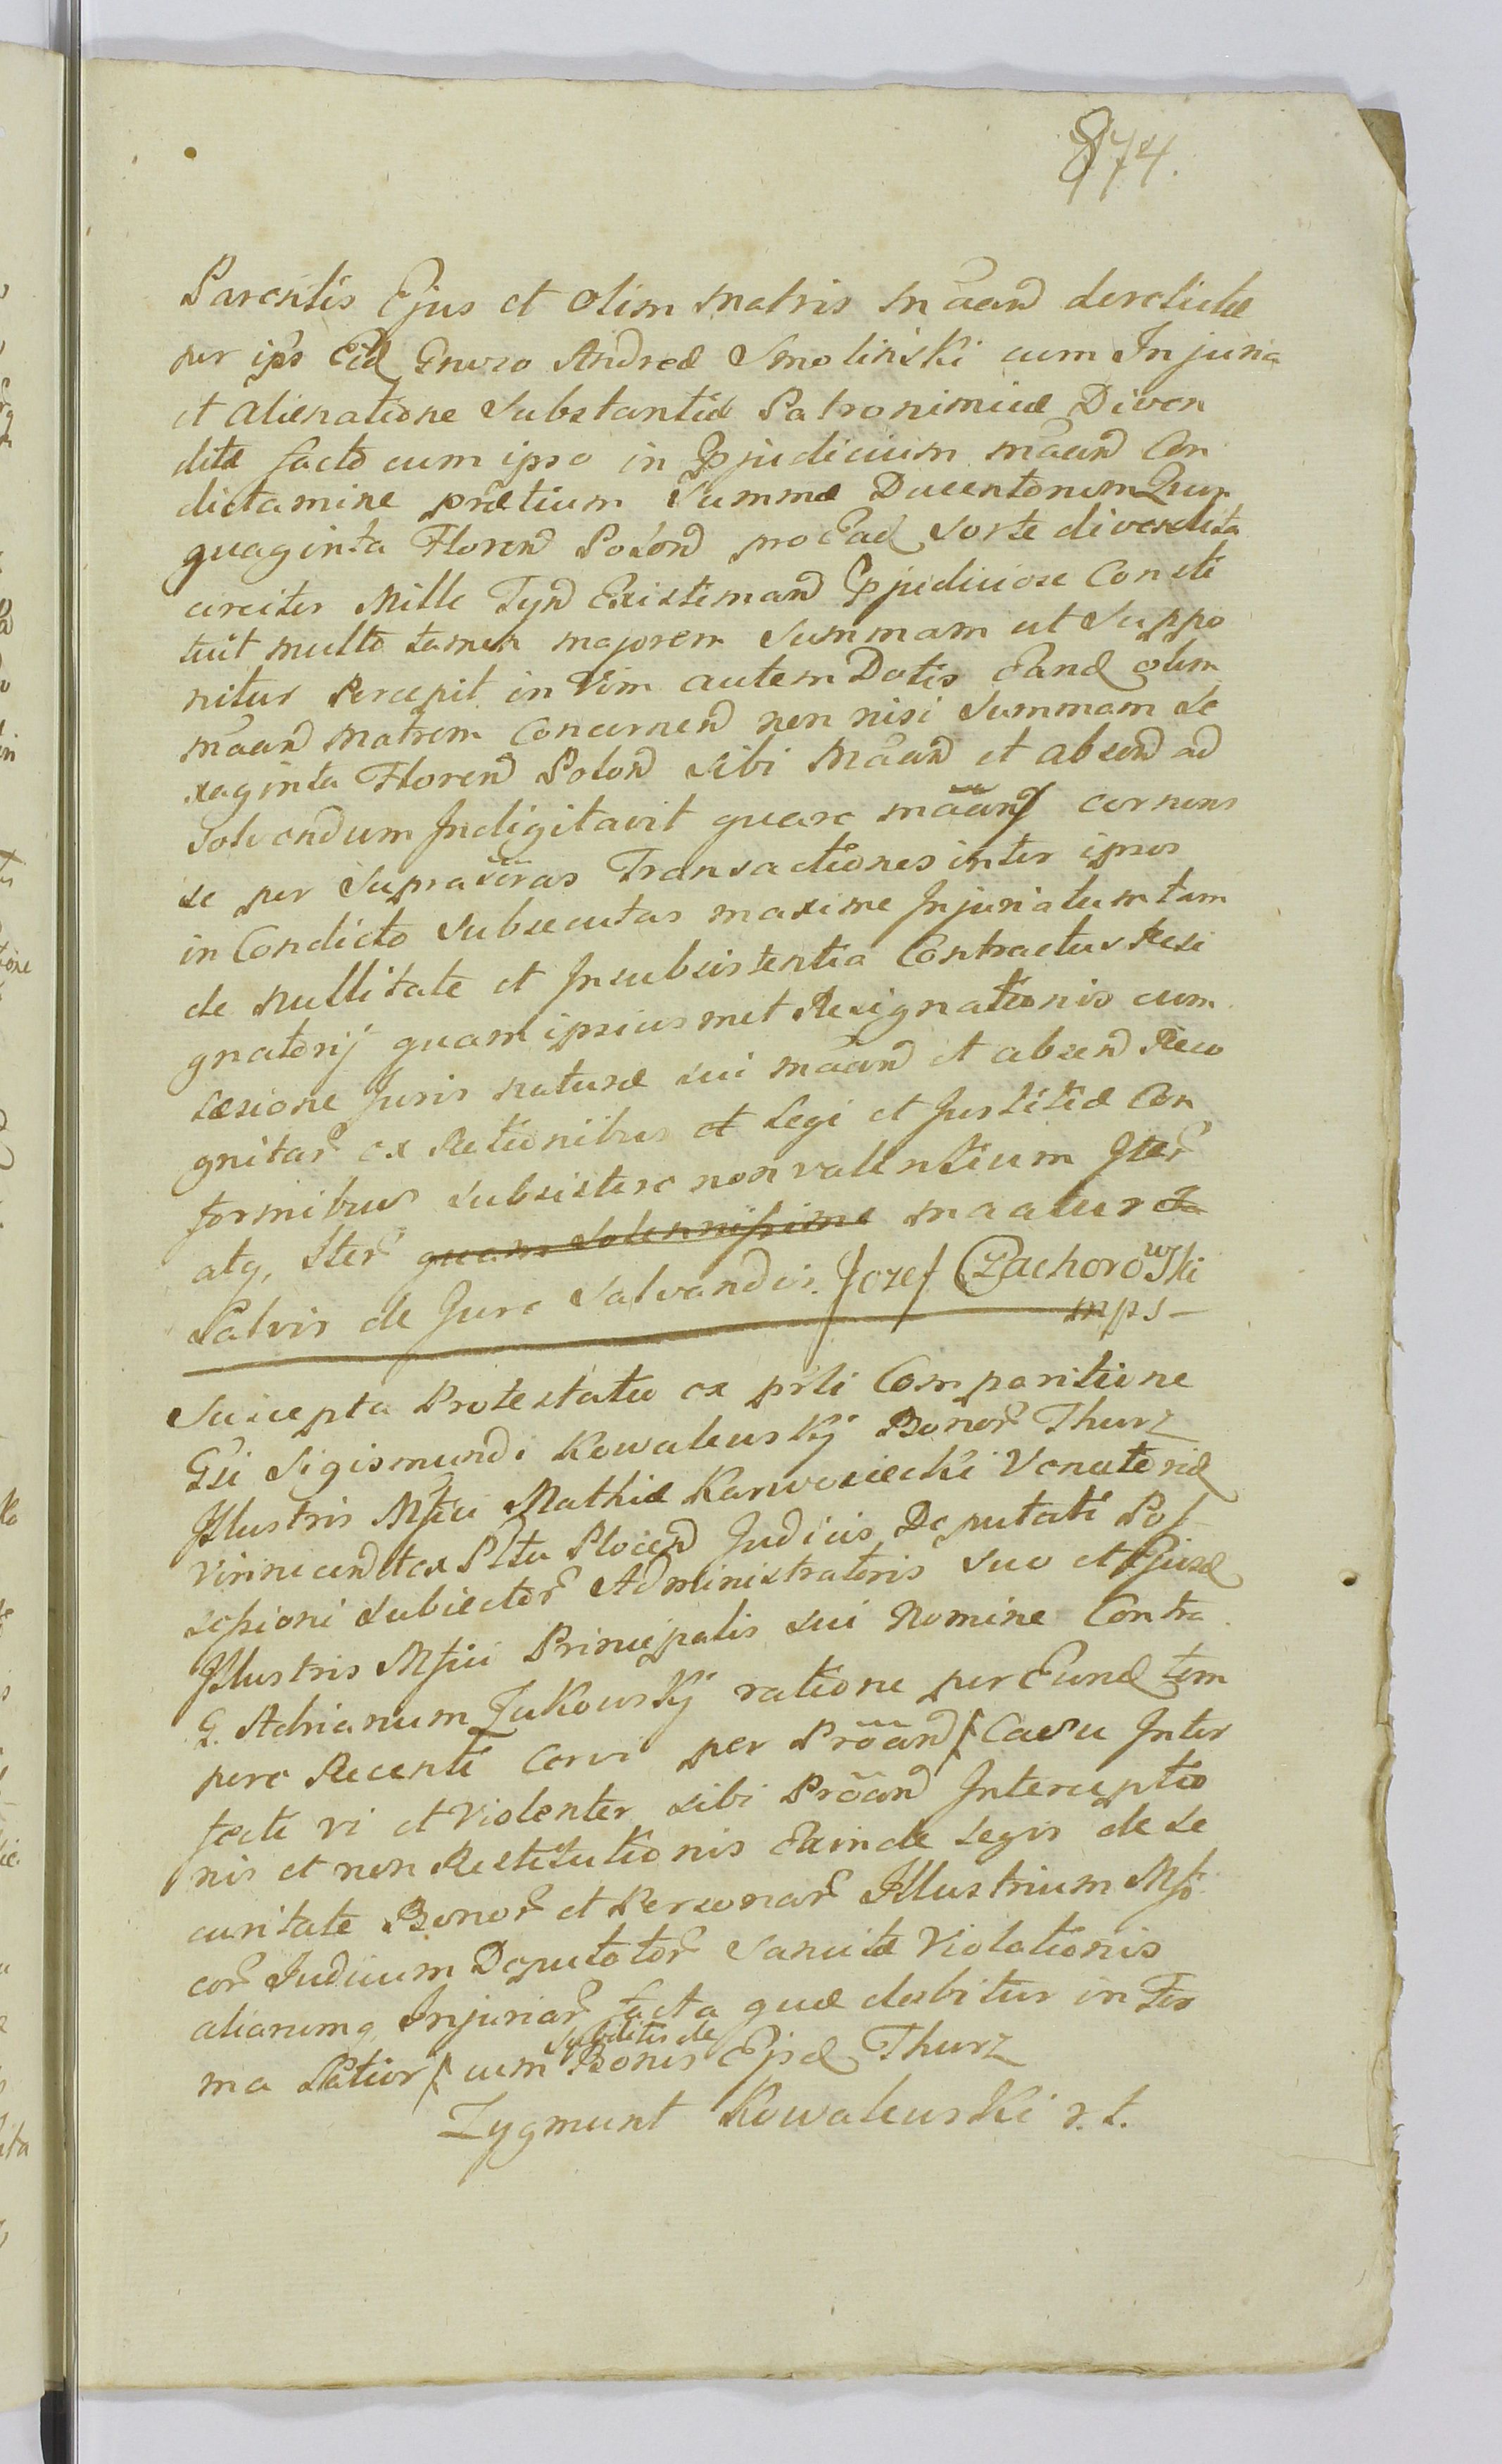 874.
Parentis Ejus et olim matris mãand derelictæ
per ips Eid Gnrso Andreæ Smolinski cum Injuria
et alienatione Substantiæ Patronimicæ Diven
ditæ facto cum ipso in Ppjudicium mãand Con
dictamine prætium Summæ Ducentorum Quin
quaginta Floren Polon pro Ead sorte divendita
circiter Mille Tyn Existiman Ppjudiciose Consti
tuit multo tamen majorem Summam ut Suppo
nitur Percepit in Vim autem Dotis Eand olim
mãand Matrem Concernen non nisi Summam Se
xaginta Floren Polon sibi Mãand et absen ad
solvendum Indigitavit quare mãand cernens
se per Suprascras Transactiones inter ipsos
in Condicto Subsecutas maxime Injuriatum tam
de nullitate et Insubsistentia Contractus Resi
gnatorij quam ipsiusmet Resignationis cum
læsione Juris naturæ sui mãand et absen Reco
gnitar ex Rationibus et Legi et Justitiæ Con
formibus subsistere non valentium Iter
atq, Iter quam solennissime maatur
Salvis de Jure Salvandis. Jozef Czachorowski
mps
Suscepta Protestatio ex psti Comparitione
Gsi Sigismundi Kowalewskÿ Bonor Thurz
Illustris Msfci Mathiæ Karwosiecki Venatoris
et ex Plttu Plocen Judicis Deputati Pos
sessioni subiector Administratoris suo et Ejusd
Illustris Msfici Principalis sui Nomine Contra
G. Adrianum Zukowskÿ ratione per Eund tem
pore Recenti Cervi per Prõand Casu Inter
fecti vi et Violenter sibi Prõand Interceptio
nis et non Restitutionis Exinde Legis de Se
curitate Bonor et Personar Illustrium Msfi
cor Judicum Deputator Sancitæ Violationis
aliarumq Injuriar facta quæ dabitur in For
ma Latiori cum Subditis de Bonis Ejsd Thurz
Zygmunt Kowalewski r. t.